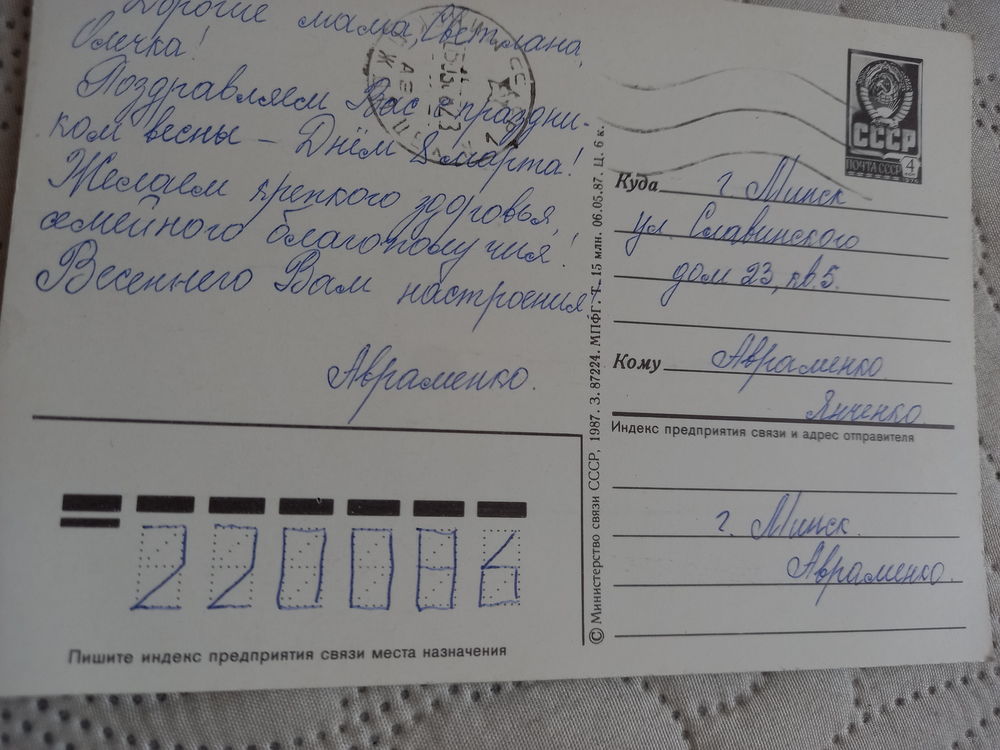 Дорогие мама, Светлана,
Олечка!
Поздравляем Вас с праздни-
ком весны – Днём 8 марта!
Желаем крепкого здоровья,
семейного благополучия!
Весеннего Вам настроения!
Авраменко.
СССР
ПОЧТА СССР 4
1976
Куда г. Минск
ул. Славинского
дом 23, кв. 5.
Кому Авраменко
Янченко
Индекс предприятия связи и адрес отправителя
г. Минск
Авраменко.
© Министерство связи СССР, 1987. З. 87224. МПФГ. Т. 15 млн. 06.05.87. Ц. 6 к.
220086
Пишите индекс предприятия связи места назначения